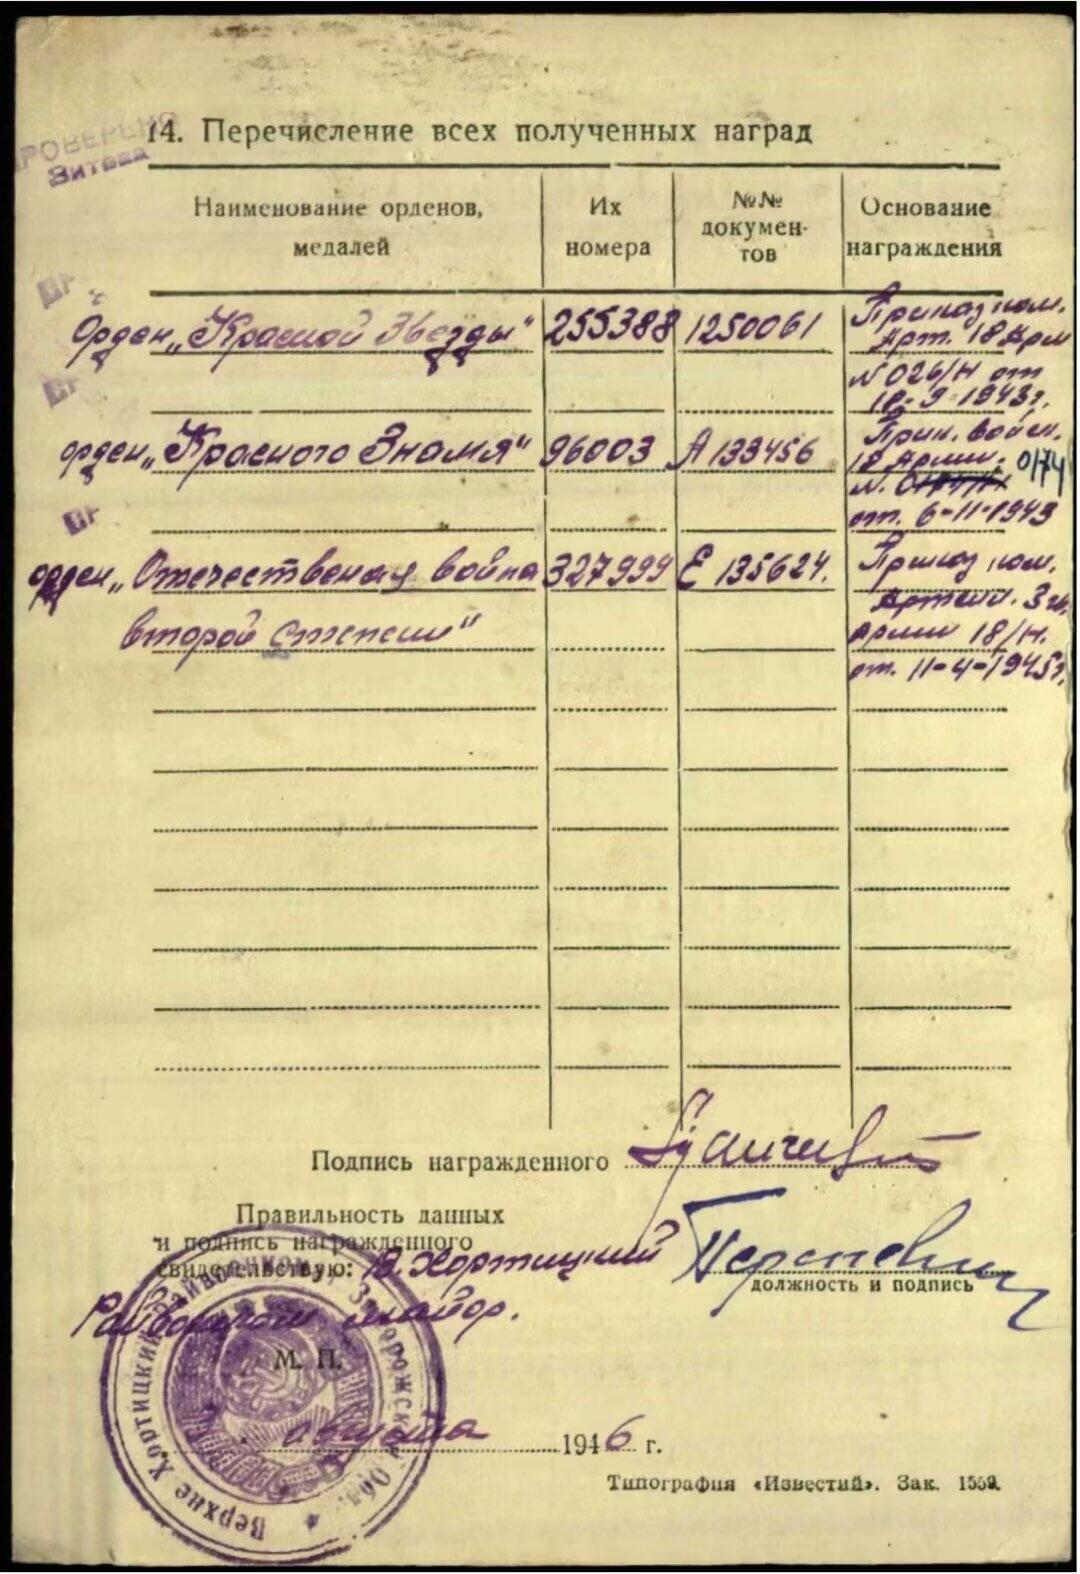 ПРОВЕРЕНО
14. Перечисление всех полученных наград
Наименование орденов, медалей
Их номера
№№ докумен-тов
Основание награждения
Орден „Красной Звезды"
255388
1250061
Приказ ком.
Арт. 18 Арм
N 026/н от
18-9-1943г.
орден „Красного Знамя"
96003
А 133456
Прик. Войск.
18 Армии.
0174
N.
от. 6-11-1943
орден „Отечественая война
327999
Е 135624.
второй степени"
Приказ ком.
Артилл. 3 гв.
Армии 18/н.
от. 11-4-1945г.
Подпись награжденного
Правильность данных
и подпись награжденного
свидетельствую: В. Хортицкий
Райвоенком майор.
должность и подпись
М. П.
августа 1946 г.
Верхне Хортицкий Райвоенкомат Запорожской Обл.
Типография «Известий». Зак. 1559.